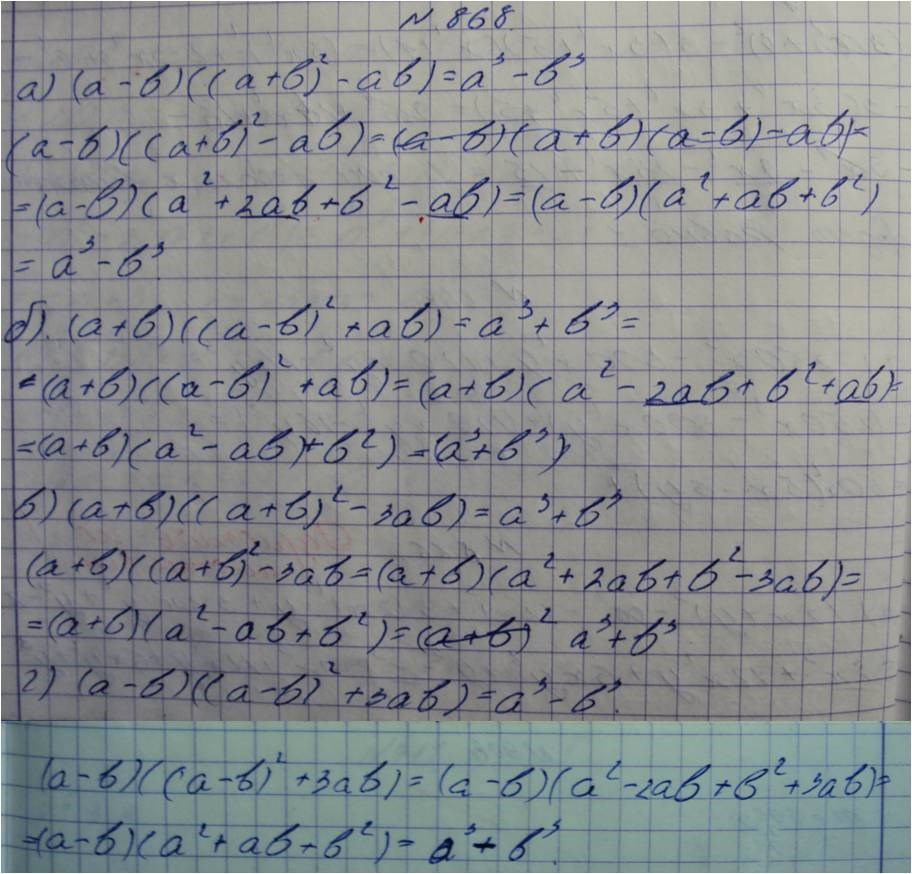 № 868.
а) (a-b)((a+b)²-ab)=a³-b³.
(a-b)((a+b)²-ab)=(a-b)(a+b)(a-b)-ab)=
=(a-b)(a²+2ab+b²-ab)=(a-b)(a²+ab+b²)
= a³-b³.
б). (a+b)((a-b)²+ab)=a³+b³=
=(a+b)((a-b)²+ab)=(a+b)(a²-2ab+b²+ab)=
=(a+b)(a²-ab)+b²)=(a³+b³)
в) (a+b)((a+b)²-3ab)=a³+b³
(a+b)((a+b)²-3ab=(a+b)(a²+2ab+b²-3ab)=
=(a+b)(a²-ab+b²)=(a+b)² a³+b³
г) (a-b)((a-b)²+3ab)=a³-b³.
(a-b)((a-b)²+3ab)=(a-b)(a²-2ab+b²+3ab)=
=(a-b)(a²+ab+b²)=a³+b³.